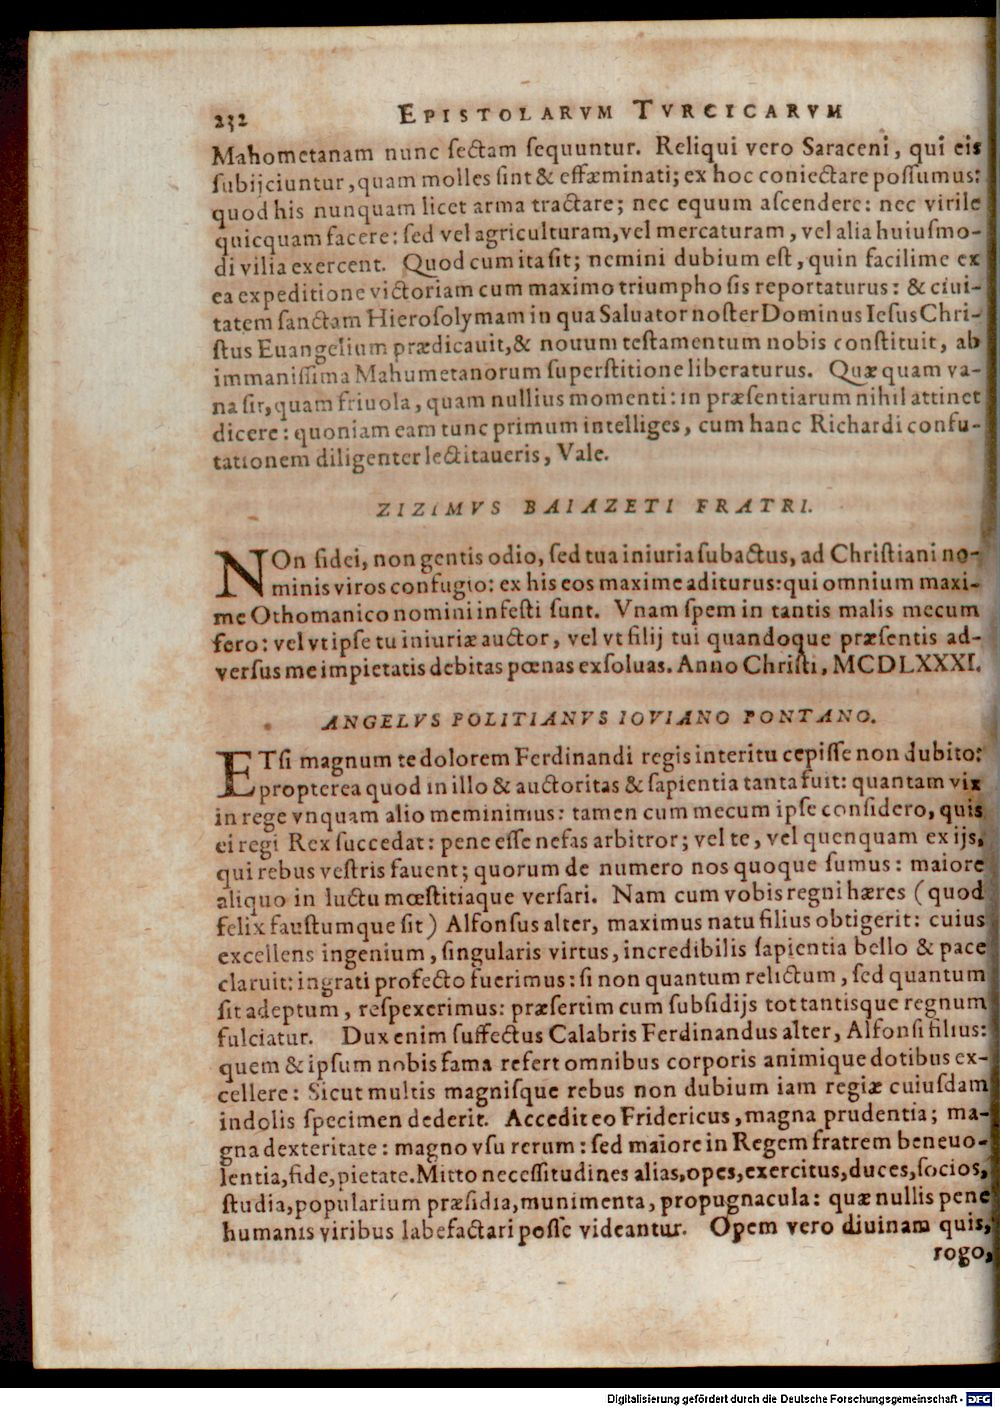 232 EPISTOLARVM TVRCICARVM
Mahometanam nunc ſectam ſequuntur. Reliqui vero Saraceni, qui eis
ſubijciuntur, quam molles ſint & effæminati; ex hoc coniectare poſſumus:
quod his nunquam licet arma tractare; nec equum aſcendere: nec virile
quicquam facere: ſed vel agriculturam, vel mercaturam, vel alia huiuſmo-
di vilia exercent. Quod cum ita ſit; nemini dubium eſt, quin facilime ex
ea expeditione victoriam cum maximo triumpho ſis reportaturus: & ciui-
tatem ſanctam Hieroſolymam in qua Saluator noſter Dominus Ieſus Chri-
ſtus Euangelium prædicauit, & nouum teſtamentum nobis conſtituit, ab
immaniſſima Mahumetanorum ſuperſtitione liberaturus. Quæ quam va-
na ſit, quam friuola, quam nullius momenti: in præſentiarum nihil attinet
dicere: quoniam eam tunc primum intelliges, cum hanc Richardi confu-
tationem diligenter lectitaueris, Vale.
ZIZIMVS BAIAZETI FRATRI.
NOn fidei, non gentis odio, ſed tua iniuria ſubactus, ad Chriſtiani no-
minis viros confugio: ex his eos maxime aditurus: qui omnium maxi-
me Othomanico nomini infeſti ſunt. Vnam ſpem in tantis malis mecum
fero: vel vt ipſe tu iniuriæ auctor, vel vt filij tui quandoque præſentis ad-
verſus me impietatis debitas pœnas exſoluas. Anno Chriſti, MCDLXXXI.
ANGELVS POLITIANVS IOVIANO PONTANO.
ETſi magnum te dolorem Ferdinandi regis interitu cepiſſe non dubito:
propterea quod in illo & auctoritas & ſapientia tanta fuit: quantam vix
in rege vnquam alio meminimus: tamen cum mecum ipſe conſidero, quis
ei regi Rex ſuccedat: pene eſſe nefas arbitror; vel te, vel quenquam ex ijs,
qui rebus veſtris fauent; quorum de numero nos quoque ſumus: maiore
aliquo in luctu mœſtitiaque verſari. Nam cum vobis regni hæres (quod
felix fauſtumque ſit) Alfonſus alter, maximus natu filius obtigerit: cuius
excellens ingenium, ſingularis virtus, incredibilis ſapientia bello & pace
claruit: ingrati profecto fuerimus: ſi non quantum relictum, ſed quantum
ſit adeptum, reſpexerimus: præſertim cum ſubſidijs tot tantisque regnum
fulciatur. Dux enim ſuffectus Calabris Ferdinandus alter, Alfonſi filius:
quem & ipſum nobis fama refert omnibus corporis animique dotibus ex-
cellere: Sicut multis magniſque rebus non dubium iam regiæ cuiuſdam
indolis ſpecimen dederit. Accedit eo Fridericus, magna prudentia; ma-
gna dexteritate: magno vſu rerum: ſed maiore in Regem fratrem beneuo-
lentia, fide, pietate. Mitto neceſſitudines alias, opes, exercitus, duces, ſocios,
ſtudia, popularium præſidia, munimenta, propugnacula: quæ nullis pene
humanis viribus labefactari poſſe videantur. Opem vero diuinam quis,
rogo,
Digitalisierung gefördert durch die Deutsche Forschungsgemeinschaft - DFG